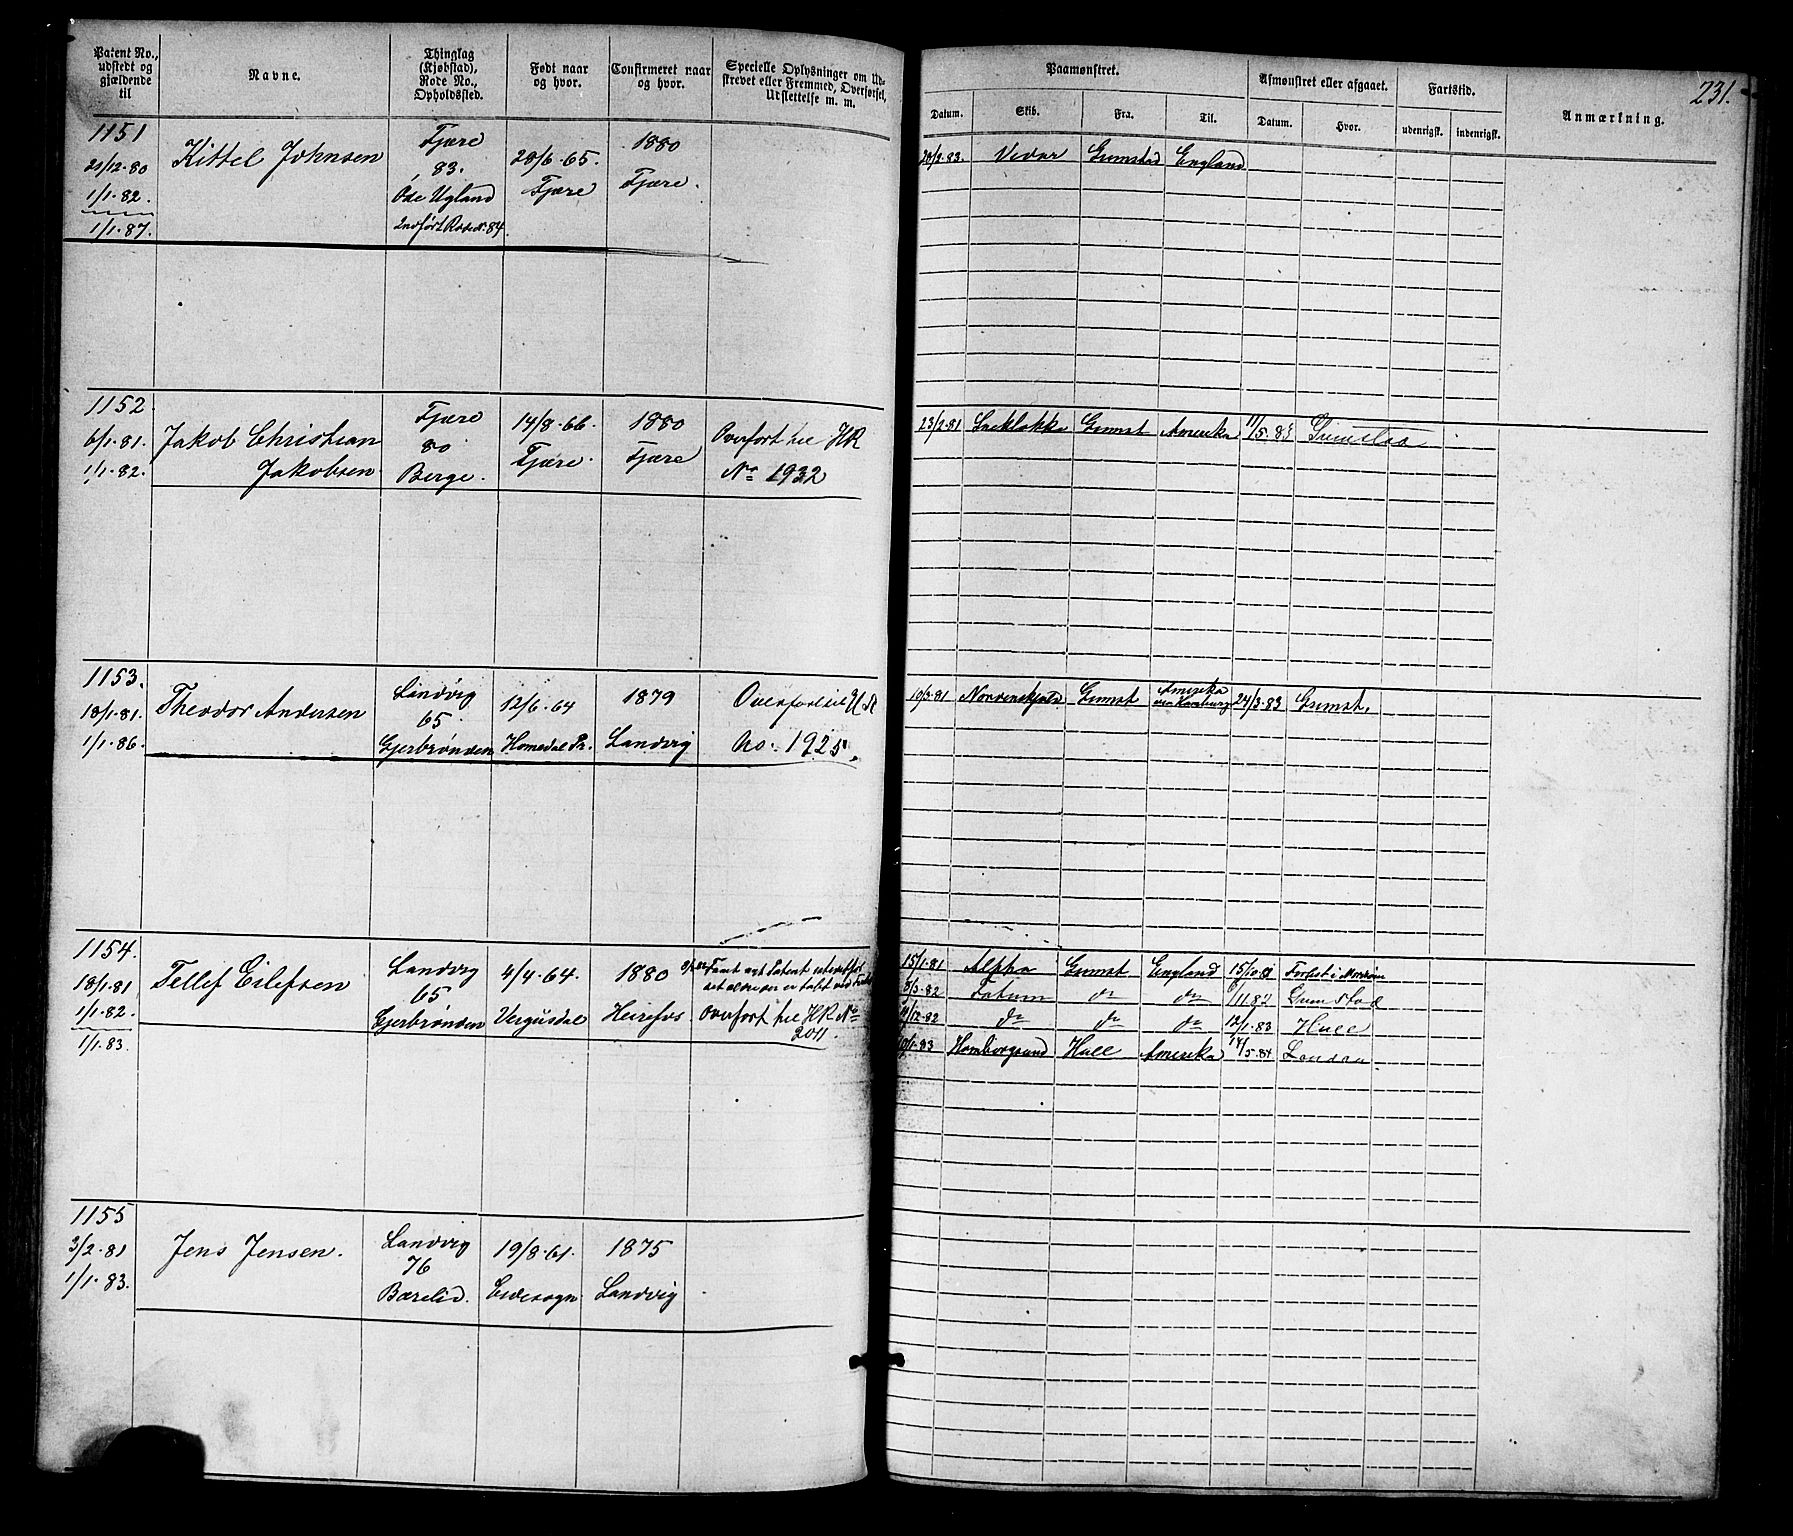 Patent No., udstedt og gjældende til
Navne.
Thinglag (Kjøbstad), Rode No., Opholdssted.
Født naar og hvor.
Confirmeret naar og hvor.
Specielle Oplysninger om Udskrevet eller Fremmed, Overførsel, Udslettelse m. m.
Paamønstret.
Datum.
Skib.
Fra.
Til.
Afmønstret eller afgaaet.
Datum.
Hvor.
Fartstid.
udenrigsk.
indenrigsk.
Anmærkning.
231.
1151
21/12.80
1/1.82.
1/1.87.
Kittel Johnsen
Fjære
83.
Ose Ugland
28/6.65.
Fjære
1880
Fjære.
20/2.83.
Vidar
Grimstad
England
1152
6/1.81.
1/1.82.
Jakob Christian
Jakobsen.
Fjære
80
Berge.
14/8.66.
Fjære.
1880
Fjære
Overført til HR
No 1932
23/2.81
Grimst
Amerika
11/5.83
Grimstad
1153.
18/1.81.
1/1.86.
Theodor Andersen
Landvig
65.
Gjerbrønden
12/6.64
Homedal Pr.
1879
Landvig
Overført til HR
No. 1925.
10/3.81
Grimst
Amerika
24/3.83
Grimst.
1154.
18/1.81
1/1.82.
1/1.83.
Tellef Eilefsen
Landvig
65
Gjerbrønden
4/4.64.
Vegusdal
1880
Overført til HR No
2011.
15/1.81
Alpha
Grimst
England
15/10.81
Forlist i
8/3.82
Fatum
do
do
Grimstad
do
do
do
12/1.83
Hull
Homborgsund
Hull
Amerika
14/5.84
London
1155
3/2.81
1/1.83.
Jens Jensen.
Landvig
76
Bærelid.
19/8.61.
Eidesogn
1875
Landvig